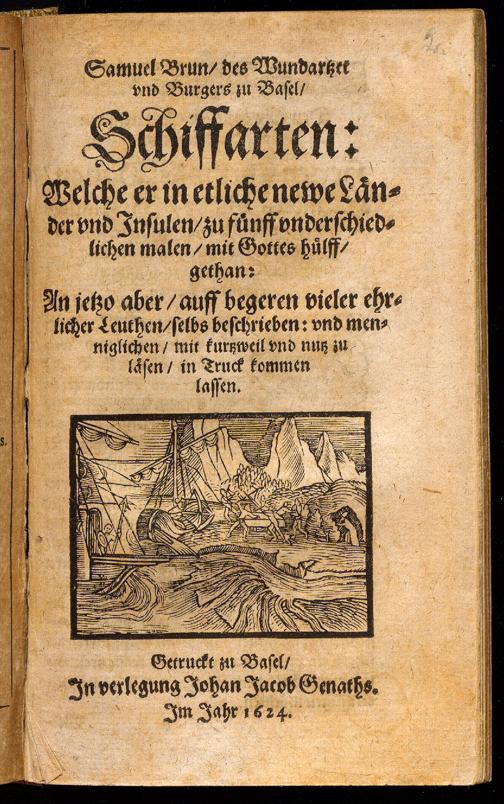 2.
Samuel Brun/ des Wundartzet
vnd Burgers zu Basel/
Schiffarten:
Welche er in etliche newe Län-
der vnd Insulen/ zu fünff vnderschied-
lichen malen/ mit Gottes hülff/
gethan:
An jetzo aber/ auff begeren vieler ehr-
licher Leuthen/ selbs beschrieben: vnd men-
niglichen/ mit kurtzweil vnd nutz zu
läsen/ in Truck kommen
lassen.
s.
Getruckt zu Basel/
In verlegung Johan Jacob Genaths.
Im Jahr 1624.